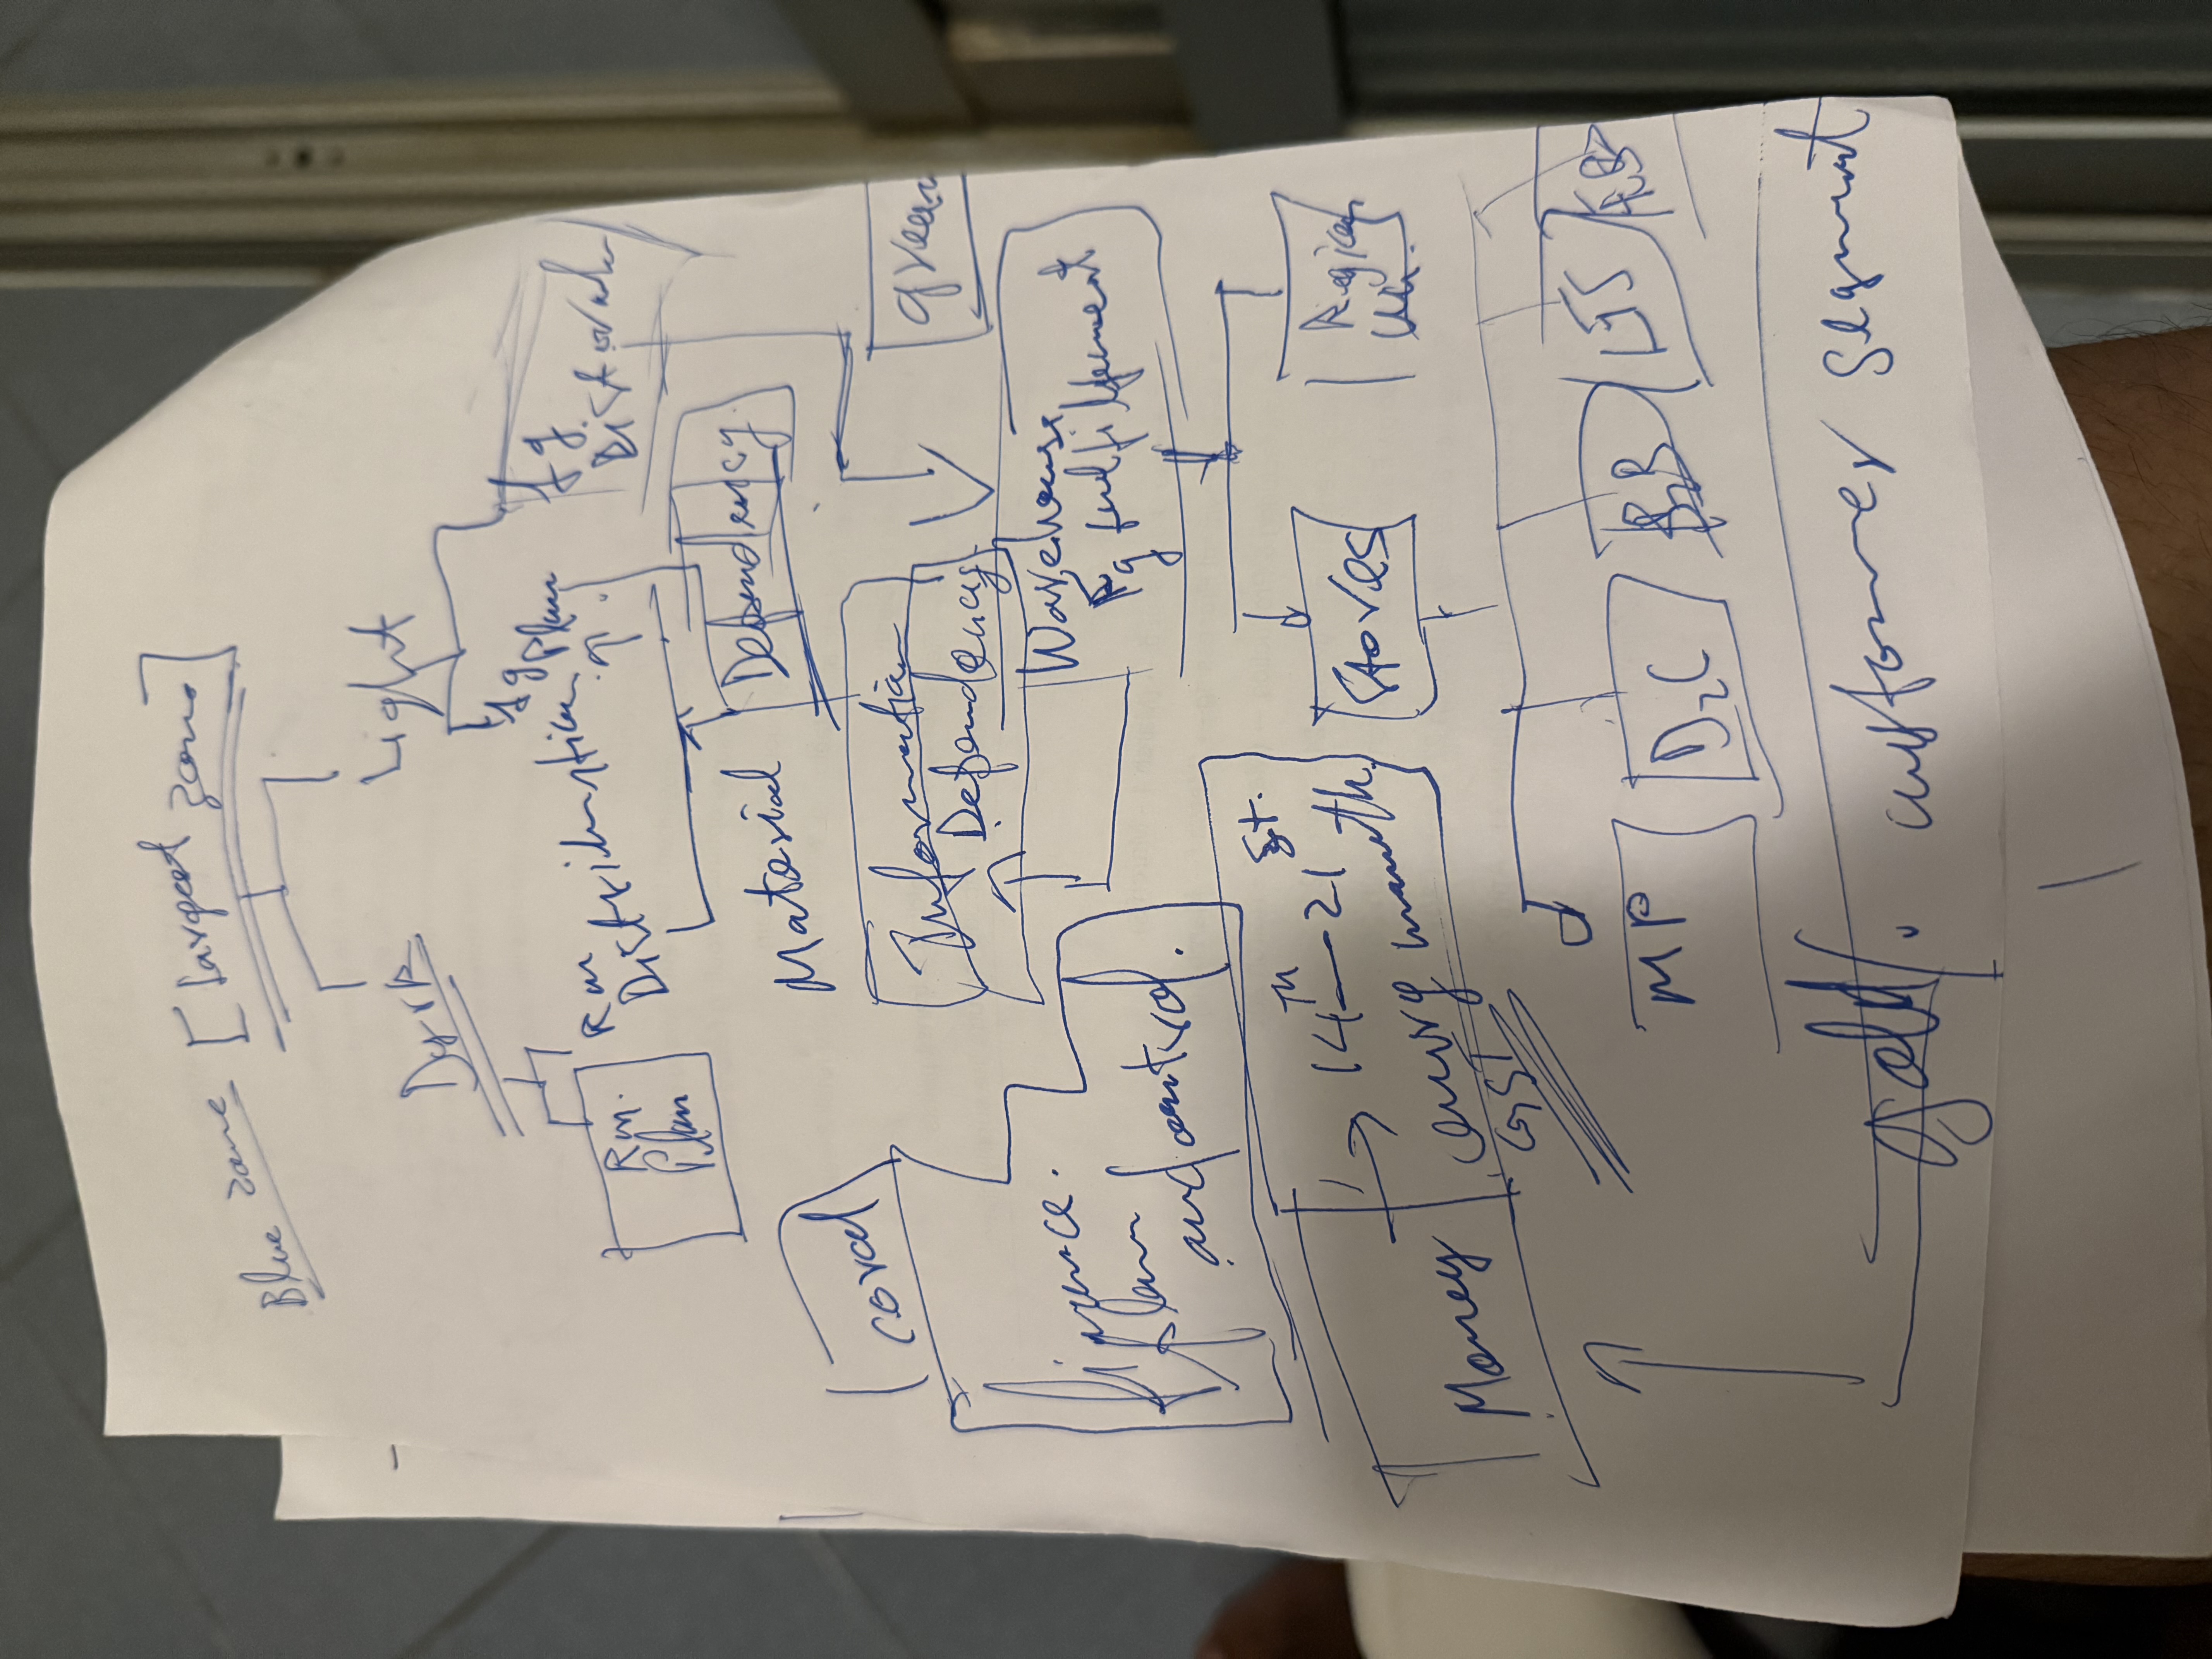 Blue zone [Largest zone]
Dark
Light
Rm.
Plan
Rm
Distribution
fg
Plan
fg
Material
Dependency
coral
Information
Dependency
green
finance.
plan
and control.
Warehouse
Fg fulfilfement
14TH — 21 st.
every month
GST
Money
Stores
Region
MP
D2C
B2B
gold/. customer segment